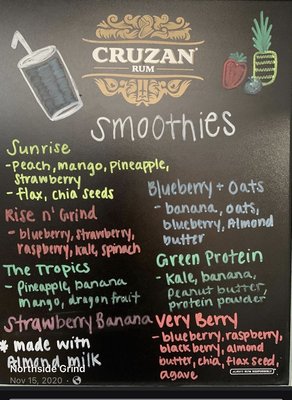 CRUZAN
RUM
smoothies
Sunrise
- Peach, mango, pineapple,
strawberry
- flax, chia seeds
Rise n' Grind
- blueberry, strawberry,
raspberry, kale, spinach
The Tropics
- Pineapple, banana
mango, dragon fruit
Strawberry Banana
* made with
Almond milk
Blueberry + Oats
- banana, oats,
blueberry, Almond
butter
Green Protein
- Kale, banana,
Peanut butter,
protein powder
Very Berry
- blueberry, raspberry,
black berry, almond
butter, chia, flax seed,
agave
Northside Grind
Nov 15, 2020 ·